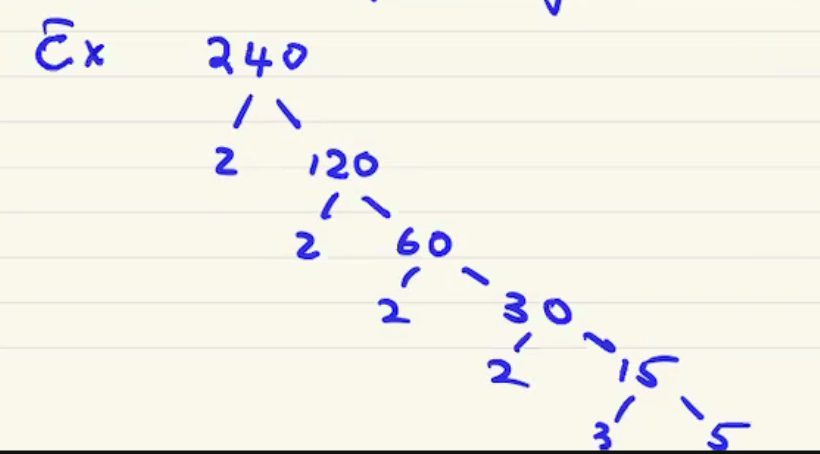 Ex 240
2 120
2 60
2 30
2 15
3 5